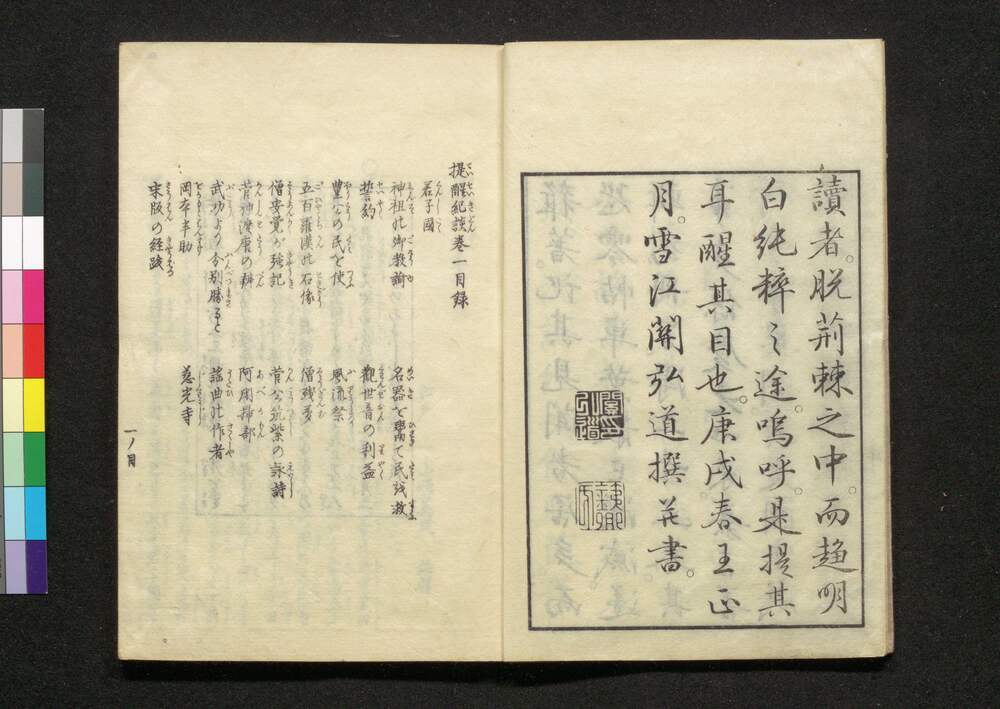 讀者。脱荊棘之中。而趨明
白純粹之途。嗚呼。是提其
耳醒其目也。庚戌春王正
月。雪江關弘道撰并書。
提醒紀談巻一目録
君子國
神祖の御教諭
名器を鬻て民を救
誓約
觀世音の利益
豊公の民を使
風流祭
五百羅漢の石像
僧残夢
僧安覺が強記
菅公筑紫の詠詩
菅神渡唐の辨
阿閇掃部
武功より分別勝ると
謡曲の作者
岡本半助
慈光寺
宋版の経跋
一ノ目